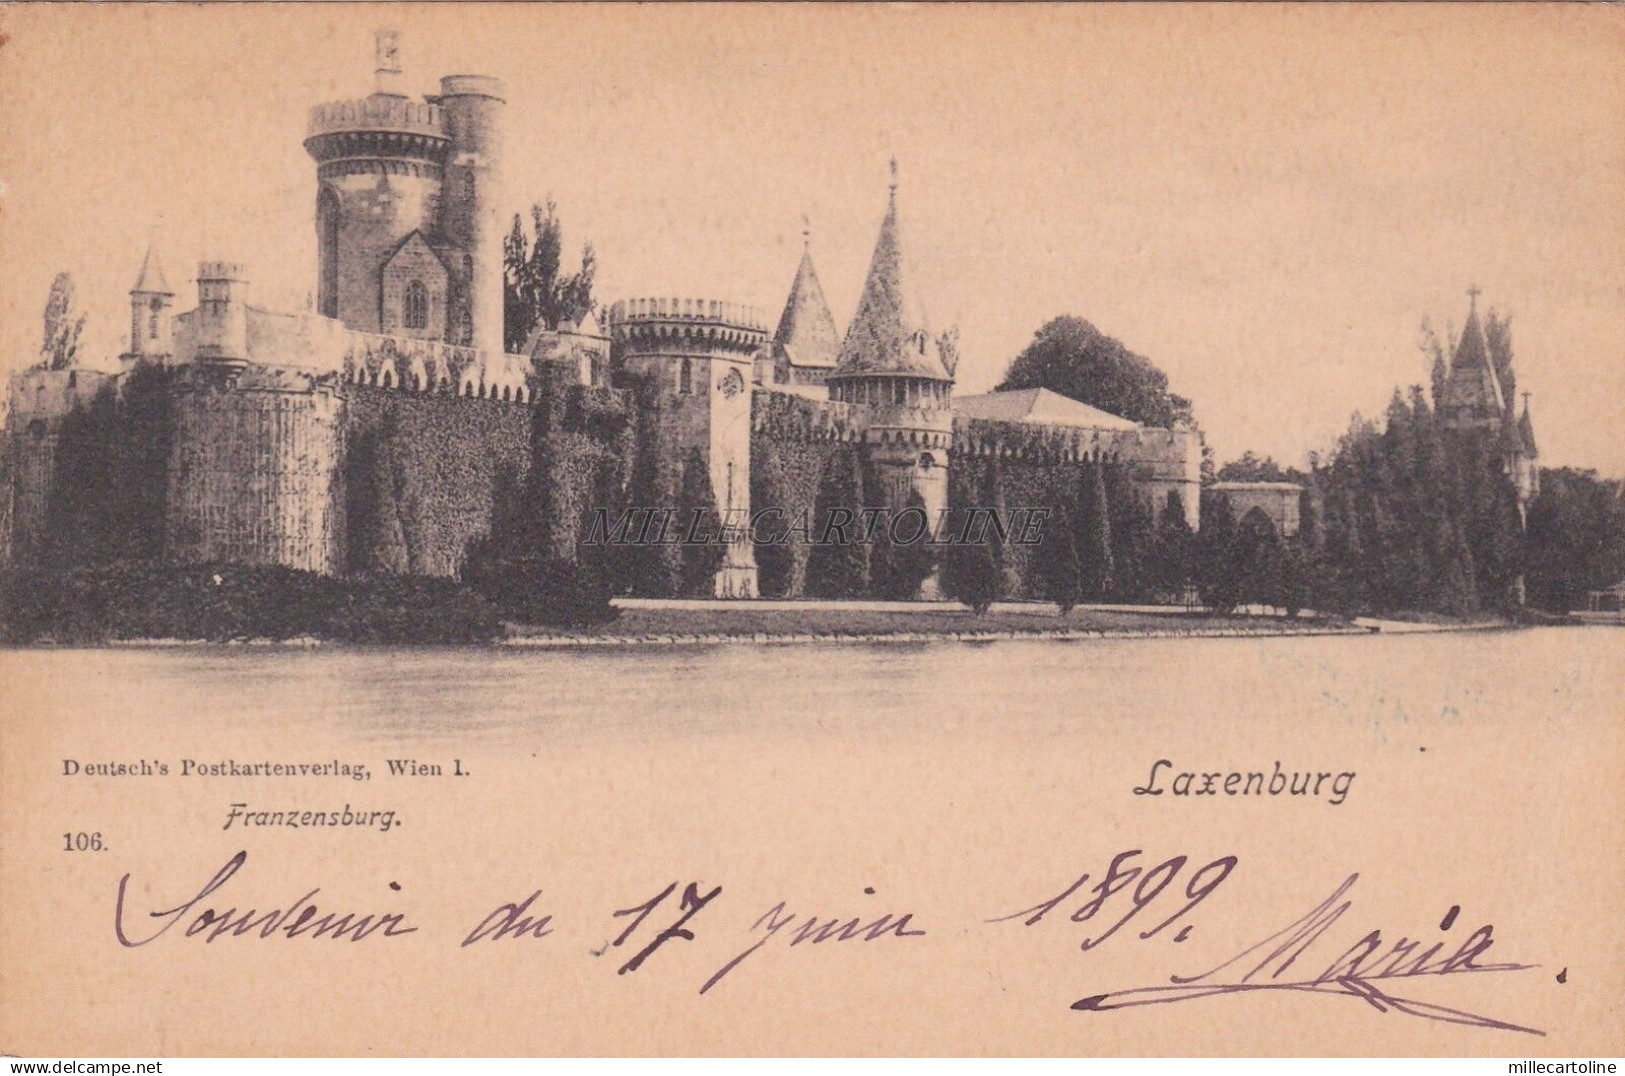 MILLECARTOLINE
Deutsch's Postkartenverlag, Wien I.
Laxenburg
Franzensburg.
106.
Souvenir du 17 juin 1899. Maria.
www.delcampe.net
millecartoline